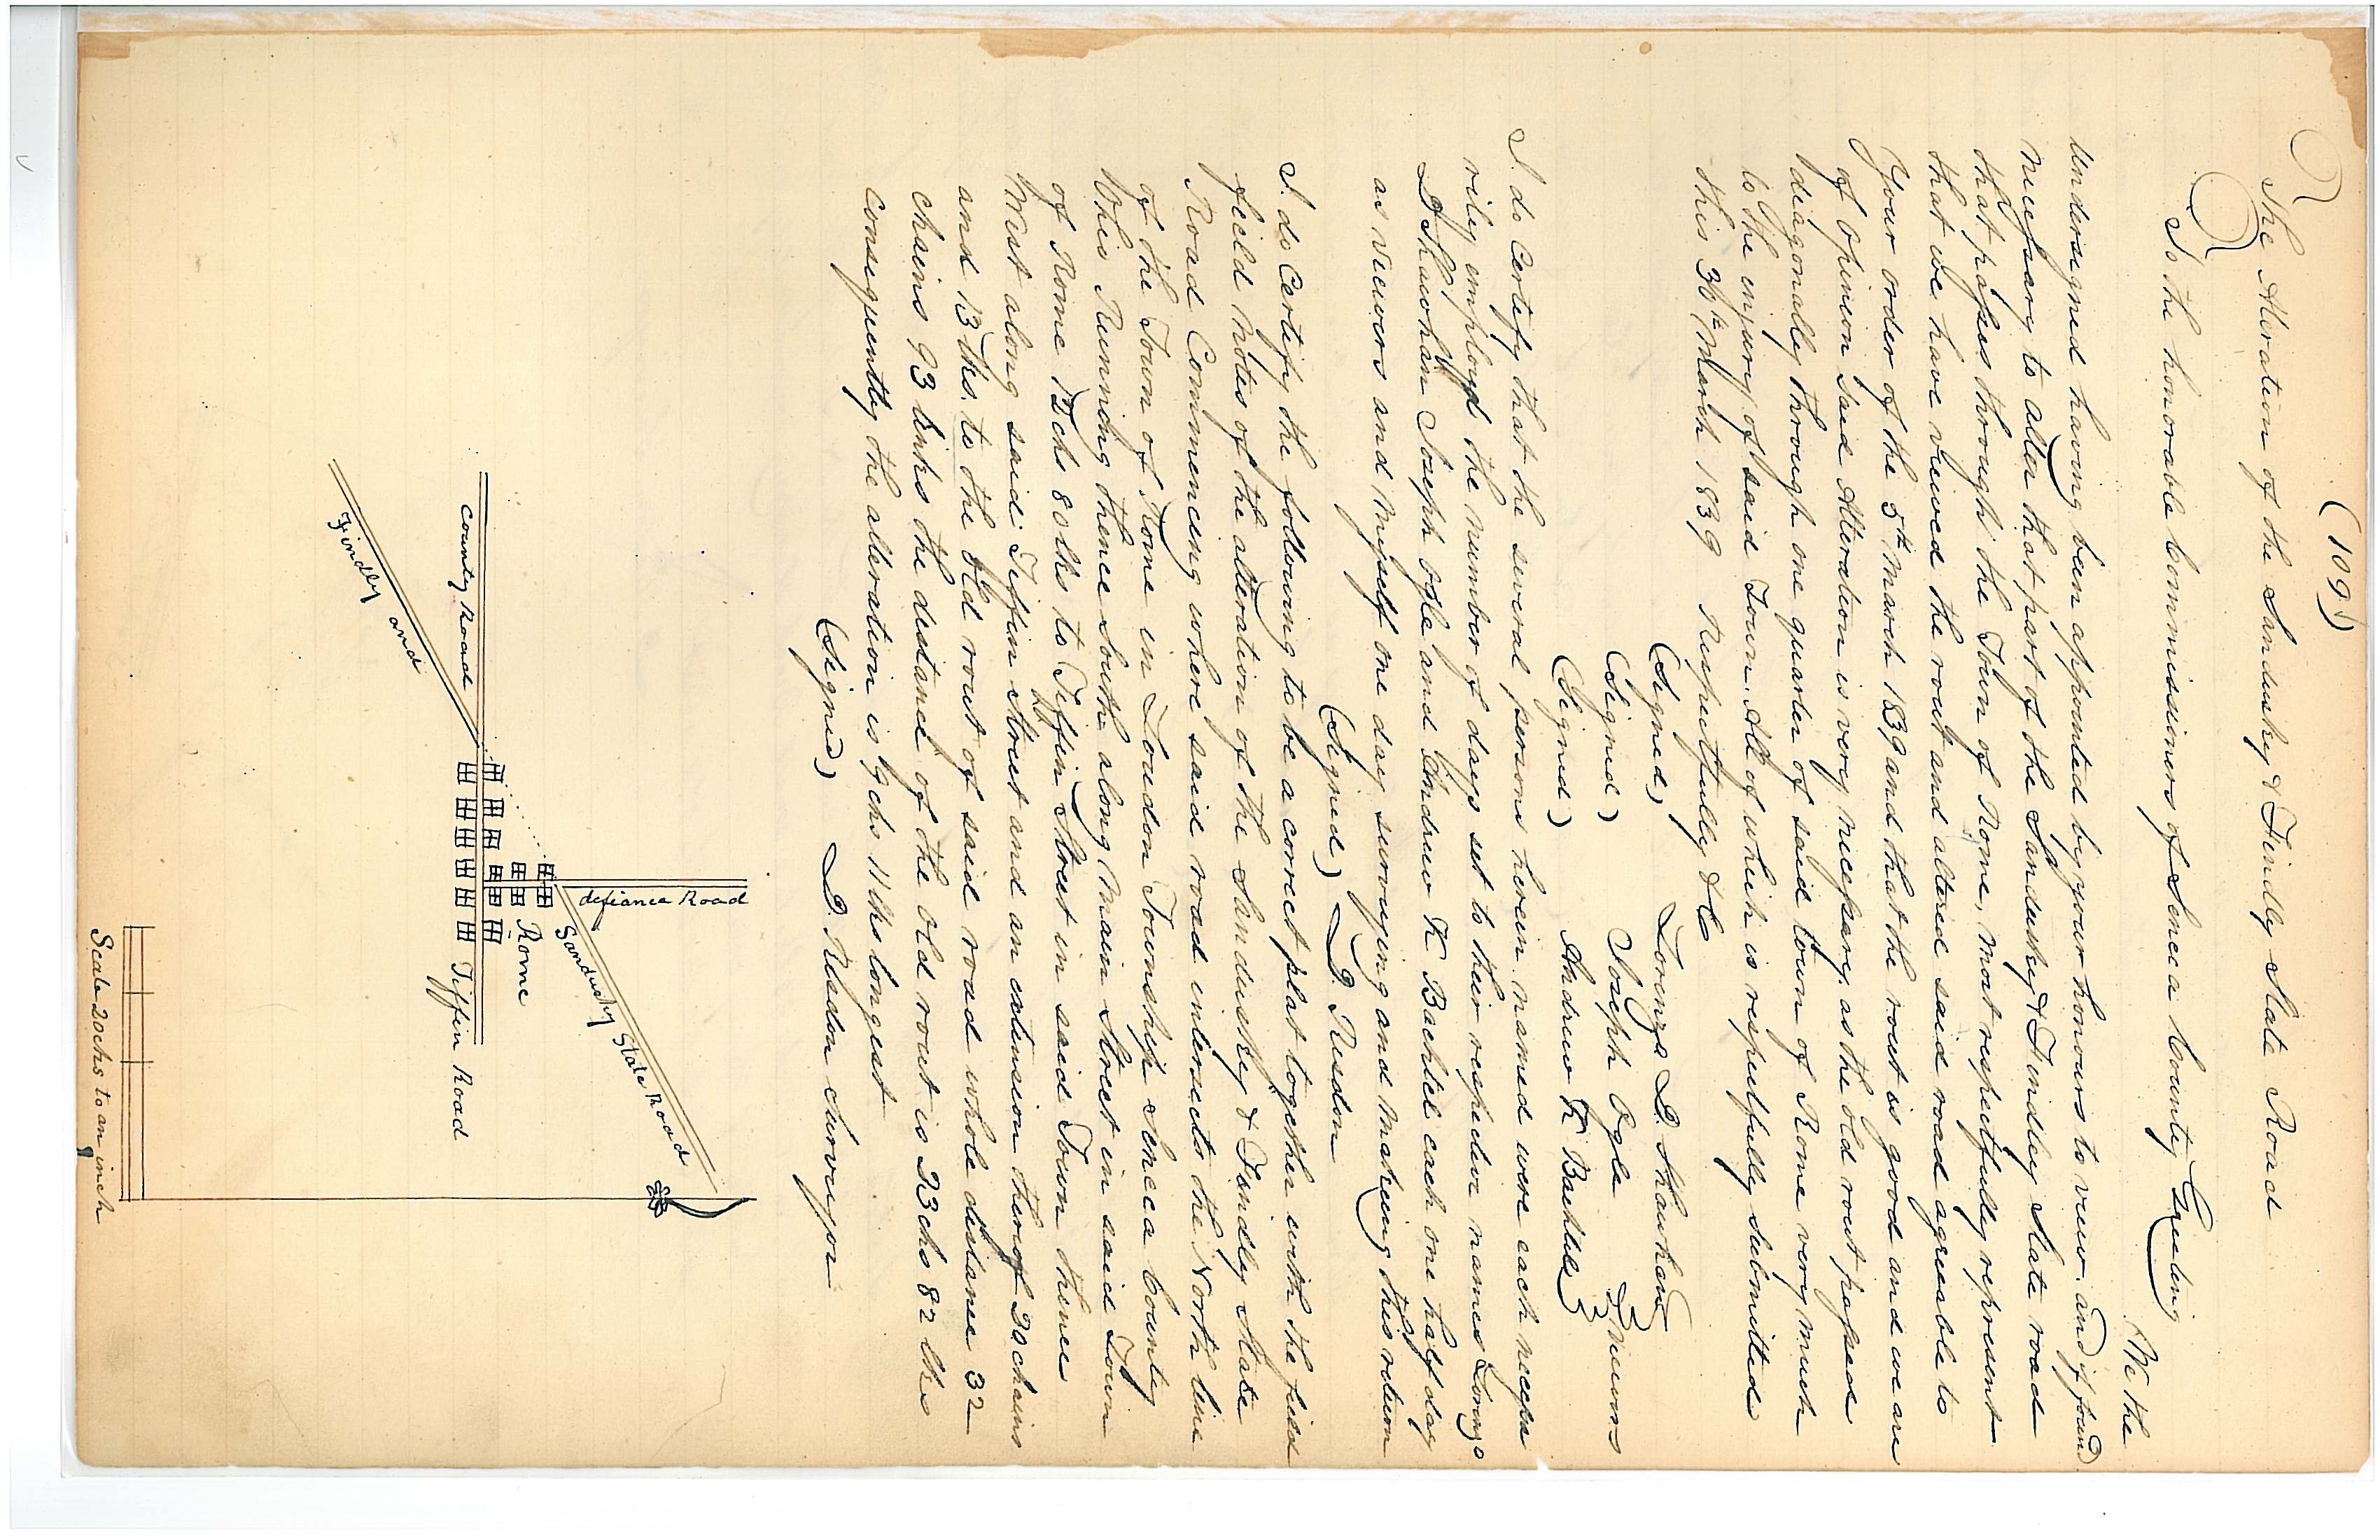 (109)
The Aleration of the Sandusky & Findly State Road
To the honorable Commissioners of Seneca County Greeting
We the
undersigned having been appointed by your honours to view, and if found
necessary to alter that part of the Sandusky & Findley State road
that passes through the Town of Rome, most respectfully represent
that we have viewed the rout and altered said road agreable to
your order of the 5th March 1839 and that the rout is good and we are
of opinion said Alteration is very necessary, as the old rout passed
diagonally through one quarter of said town of Rome very much
to the injury of said Town. All of which is respectfully submitted
this 30th March 1839 Respectfully &C
(Signed) Lorenzo D. Shawhan
(Signed) Joseph Ogle Viewers
(Signed) Andrew K Bachtel
I do Certify that the several persons herein named were each necessa
rily employed the number of days set to their respective names Lorenzo
D Shawhan Joseph Ogle and Andrew K Bachtel each one half day
as viewers and myself one day surveying and making this return
(Signed) D. Risdon
I do Certify the following to be a correct plat together with the field
field notes of the alteration of the Sandusky & Findly State
Road Commencing where said road intersects the North line
of the Town of Rome in Loudon Township Seneca County
Ohio Running thence South along Main Street in said Town
of Rome 12 chs 80 lks to Tiffin Street in said Town thence
West along said Tiffin Street and an extension thereof 20 chains
and 13 lks. to the old rout of said road whole distance 32
chains 93 links the distance of the old rout is 23 chs 82 lks
consequently the alteration is 9 chs 11 lks longest
(Signed) D. Risdon Surveyor
defiance Road
Sandusky State Road
County Road
Rome
Tiffin Road
Findly and
Scale 20 chs to an inch